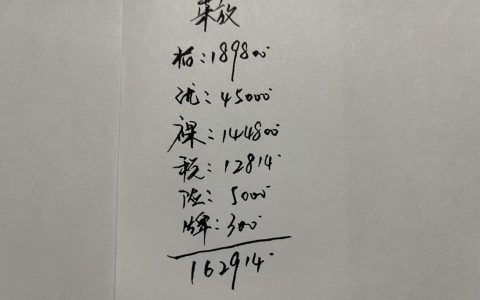 荣放
指:189800
优:45000
裸:144800
税:12814
险:5000
牌:300
162914